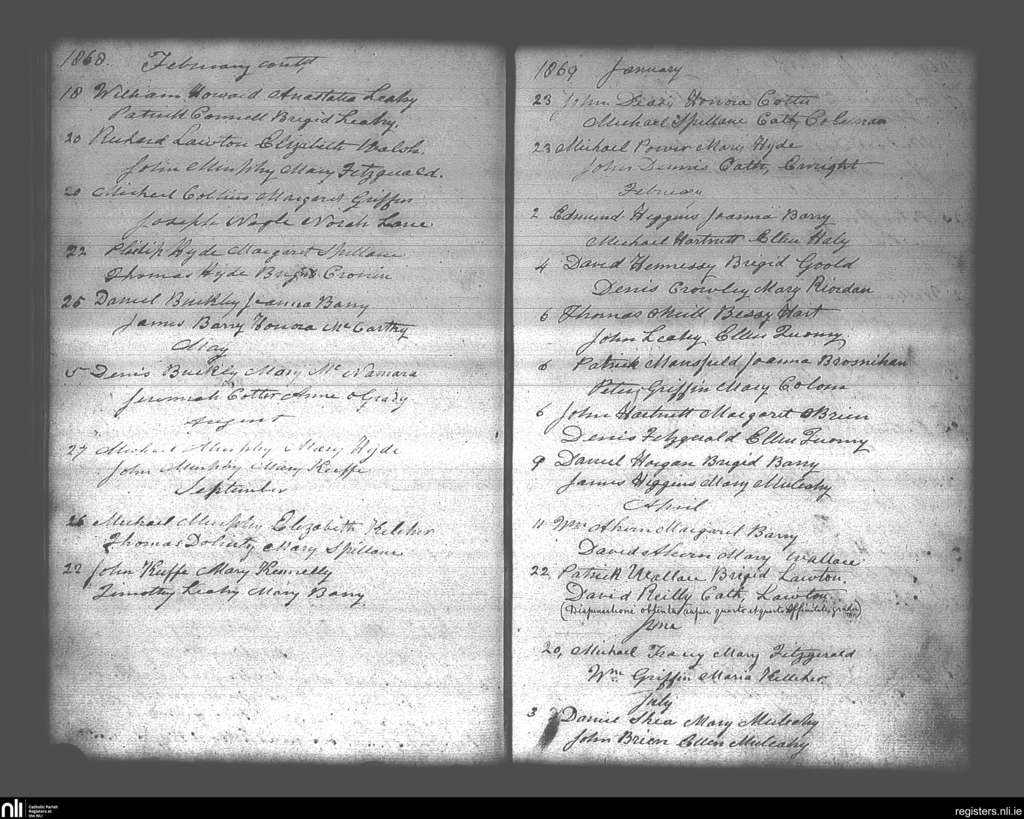 1868. February contd
18 William Howard Anastatia Leahy
Patrick Connell Brigid Leahy.
20 Richard Lawton Elizabeth Walsh.
John Murphy Mary Fitzgerald.
20 Michael Collins Margaret Griffin
Joseph Nagle Norah Lane
22 Philip Hyde Margaret Spillane
Thomas Hyde Brigid Cronin
25 Daniel Buckley Joanna Barry
James Barry Honora McCarthy
May
5 Denis Buckly Mary McNamara
Jeremiah Cotter Anne OGrady
August
27 Michael Murphy Mary Hyde
John Murphy Mary Keeffe
September
26 Michael Murphy Elizabeth Keleher
Thomas Doherty Mary Spillane
22 John Keeffe Mary Kennelly
Timothy Leahy Mary Barry
1869 January
23 John Deady Honora Cotter
Michael Spillane Cath. Colman
23 Michael Power Mary Hyde
John Dennis Cath.
February
2 Edmund Higgins Joanna Barry
Michael Hartnett Ellen Haly
4 David Hennessy Brigid Goold
Denis Crowley Mary Riordan
6 Thomas Bessy Hart
John Leahy Ellen Twomy
6 Patrick Mansfield Joanna Brosnihan
Peter Griffin Mary
6 John Hartnett Margaret OBrien
Denis Fitzgerald Ellen Twomy
9 Daniel Horgan Brigid Barry
James Higgins Mary Mulcahy
April
11 Wm Ahern Margaret Barry
David Ahern Mary Wallace
22 Patrick Wallace Brigid Lawton.
David Reilly Cath. Lawton.
(Dispensatione obtenta super quarto affinitatis gradu)
June
20, Michael Tracy Mary Fitzgerald
Wm Griffin Maria Kelleher
July
3 Daniel Shea Mary Mulcahy
John Brien Ellen Mulcahy
nli
Catholic Parish
Registers at
the NLI
registers.nli.ie